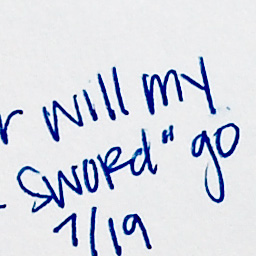 will my
sword" go
7/19